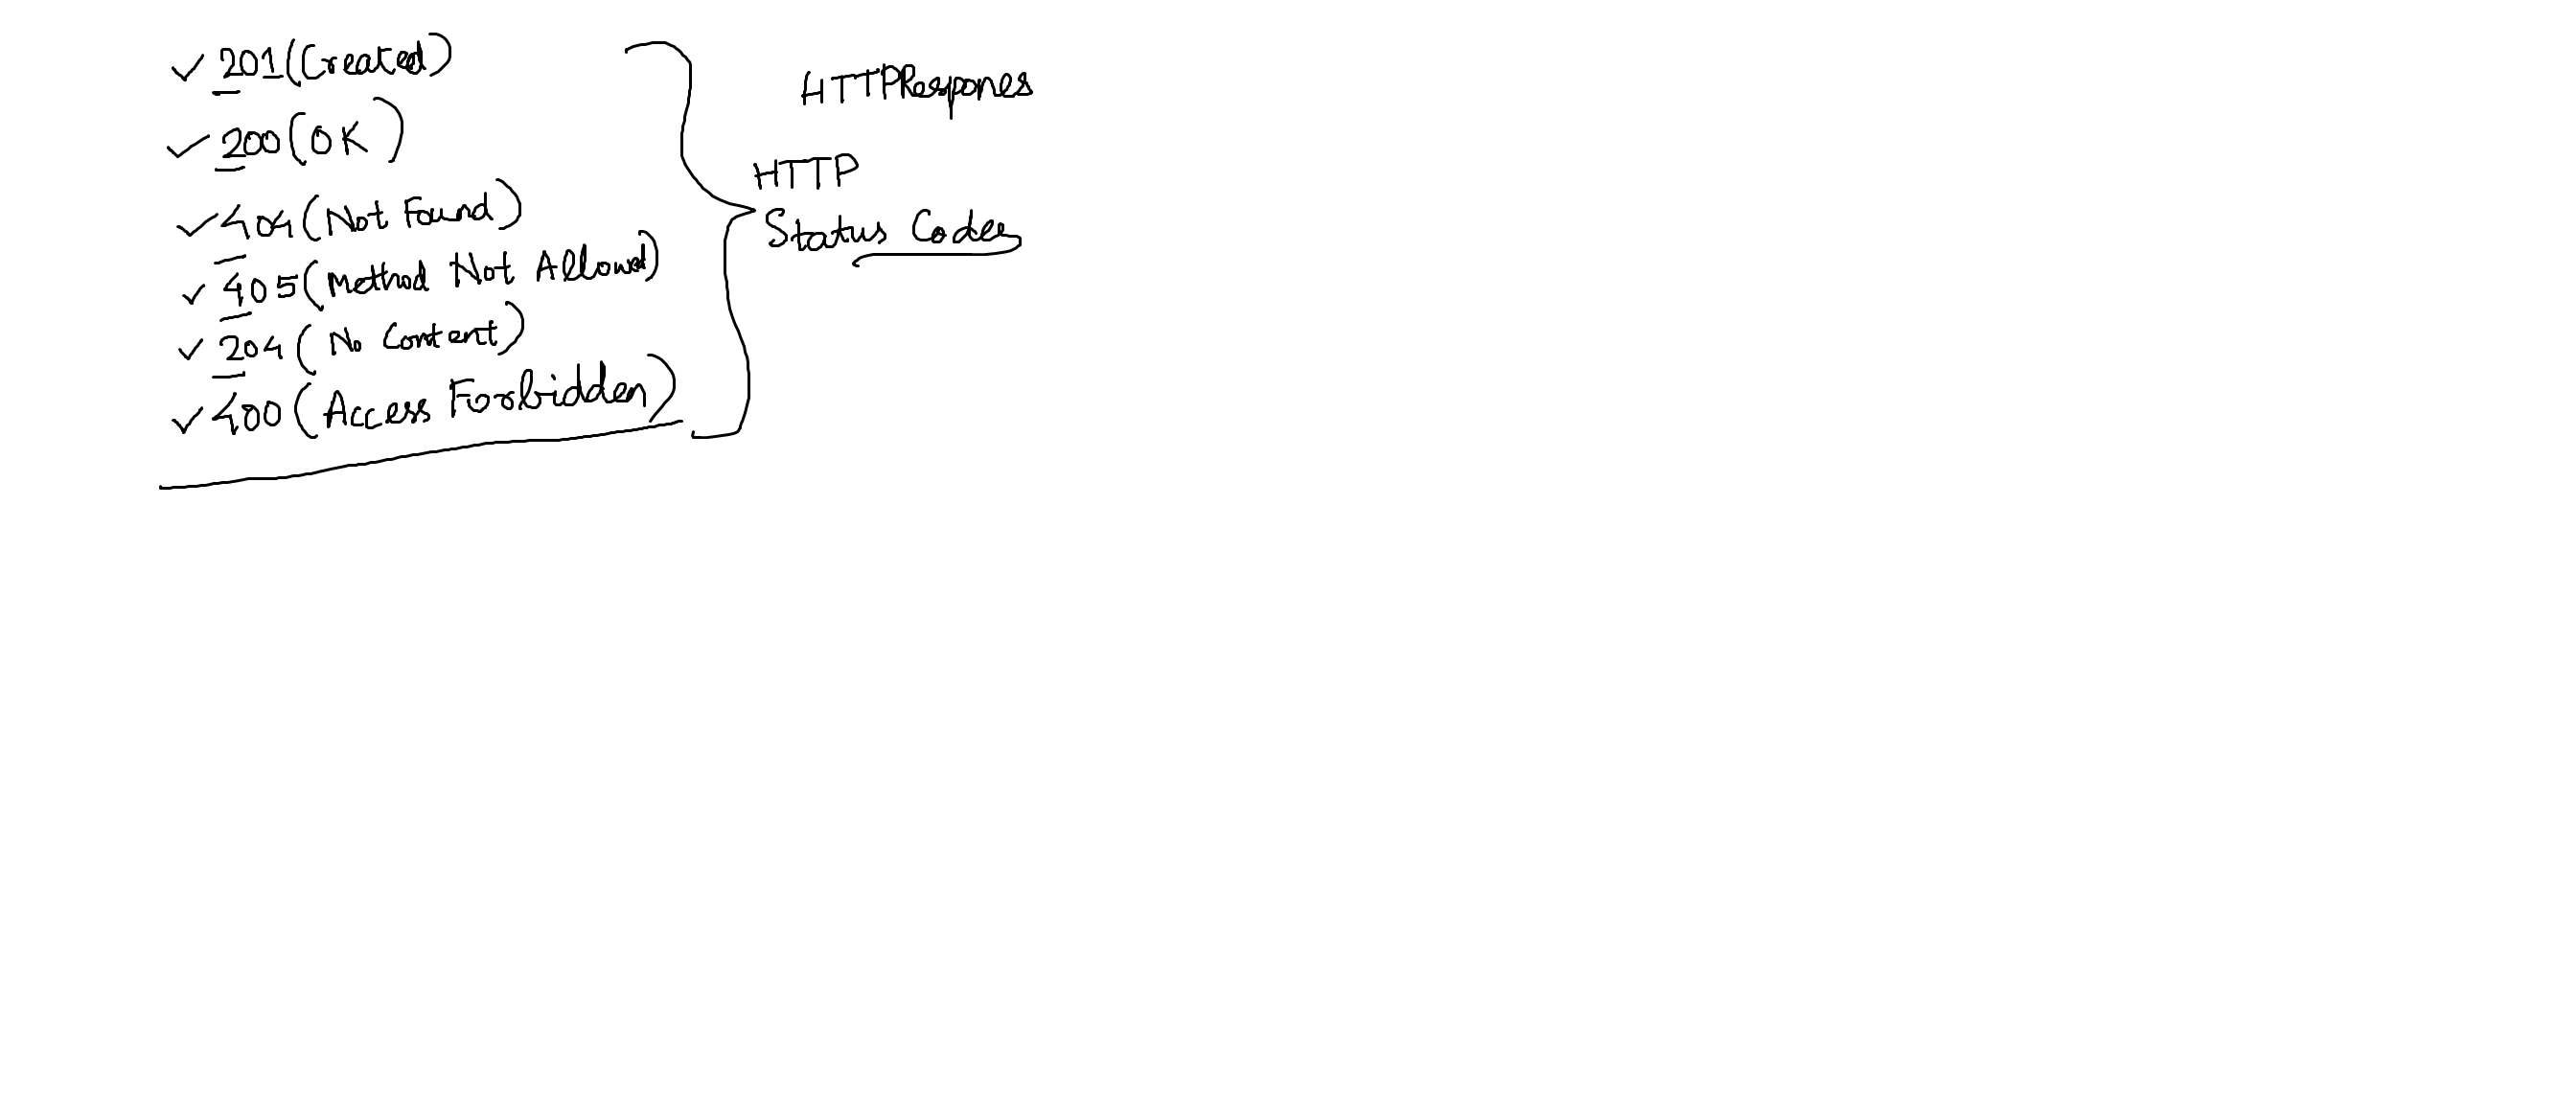 ✓ 201(Created)
✓ 200(OK)
✓ 404(Not Found)
✓ 405(Method Not Allowed)
✓ 204(No Content)
✓ 400(Access Forbidden)
HTTPRespones
HTTP
Status Codes